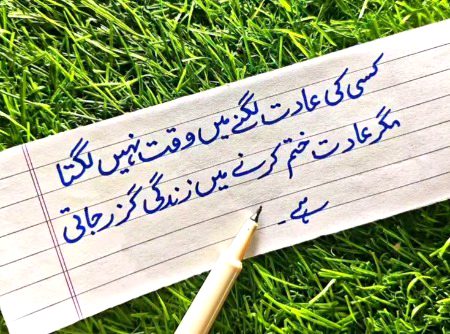 کسی کی عادت لگنے میں وقت نہیں لگتا
مگر عادت ختم کرنے میں زندگی گزر جاتی
ہے۔